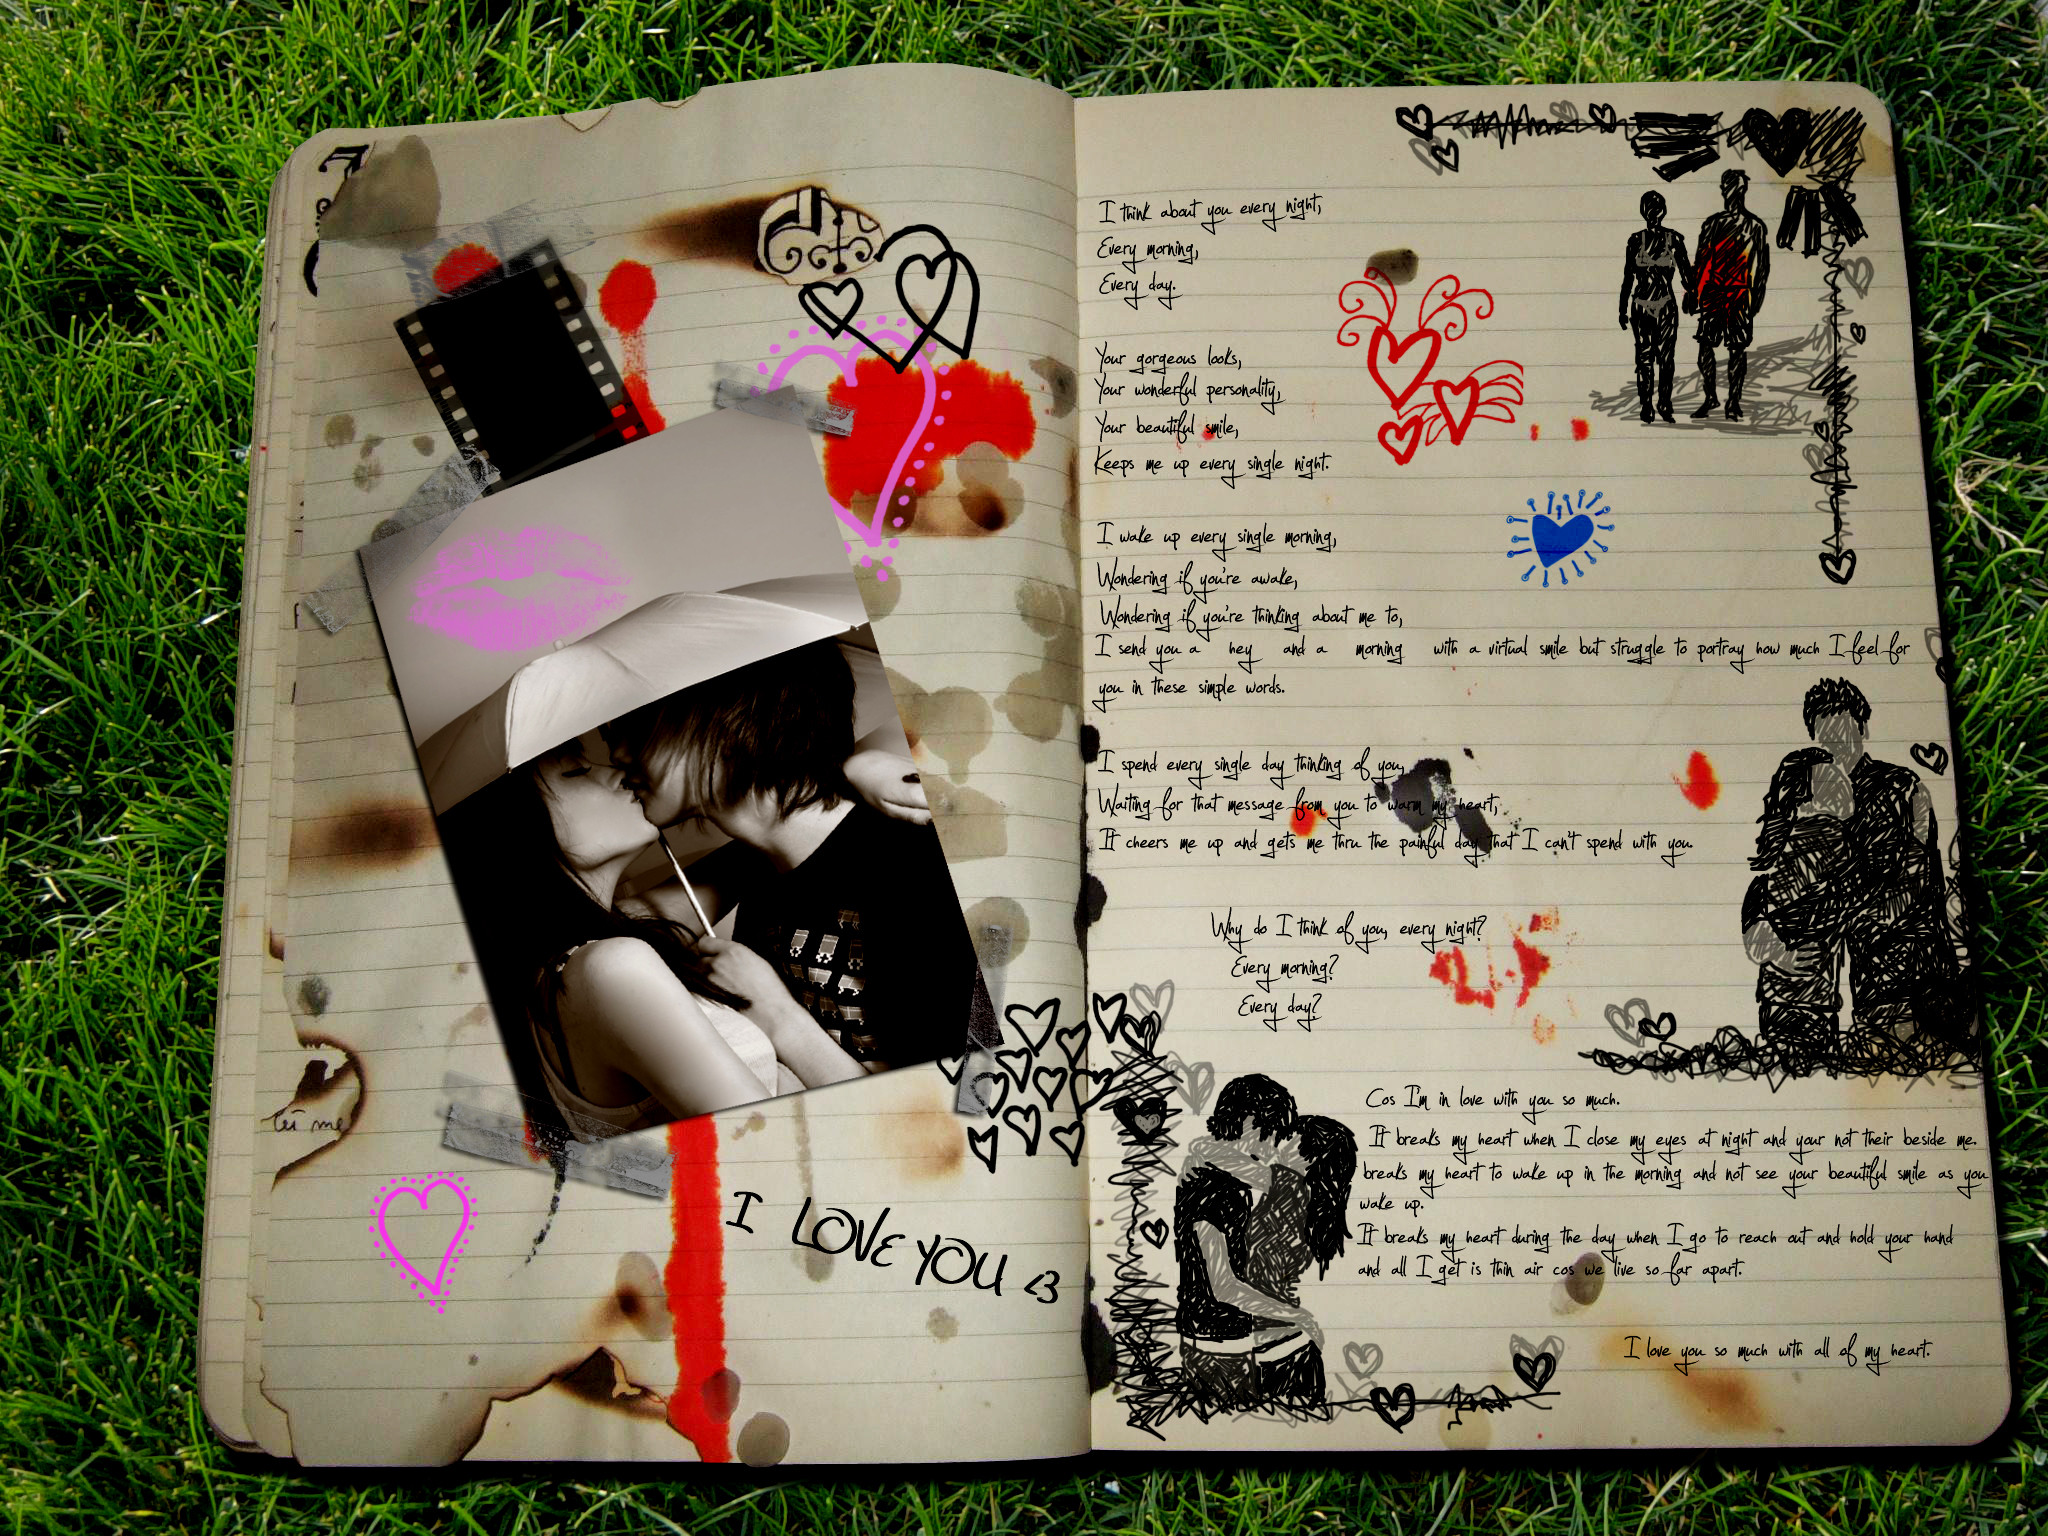 tii me
I LOVE YOU <3
I think about you every night,
Every morning,
Every day.
Your gorgeous looks,
Your wonderful personality,
Your beautiful smile,
Keeps me up every single night.
I wake up every single morning,
Wondering if you're awake,
Wondering if you're thinking about me to,
I send you a hey and a morning with a virtual smile but struggle to portray how much I feel for
you in these simple words.
I spend every single day thinking of you,
Waiting for that message from you to warm my heart,
It cheers me up and gets me thru the painful day that I can't spend with you.
Why do I think of you, every night?
Every morning?
Every day?
Cos I'm in love with you so much.
It breaks my heart when I close my eyes at night and your not their beside me.
breaks my heart to wake up in the morning and not see your beautiful smile as you
wake up.
It breaks my heart during the day when I go to reach out and hold your hand
and all I get is thin air cos we live so far apart.
I love you so much with all of my heart.